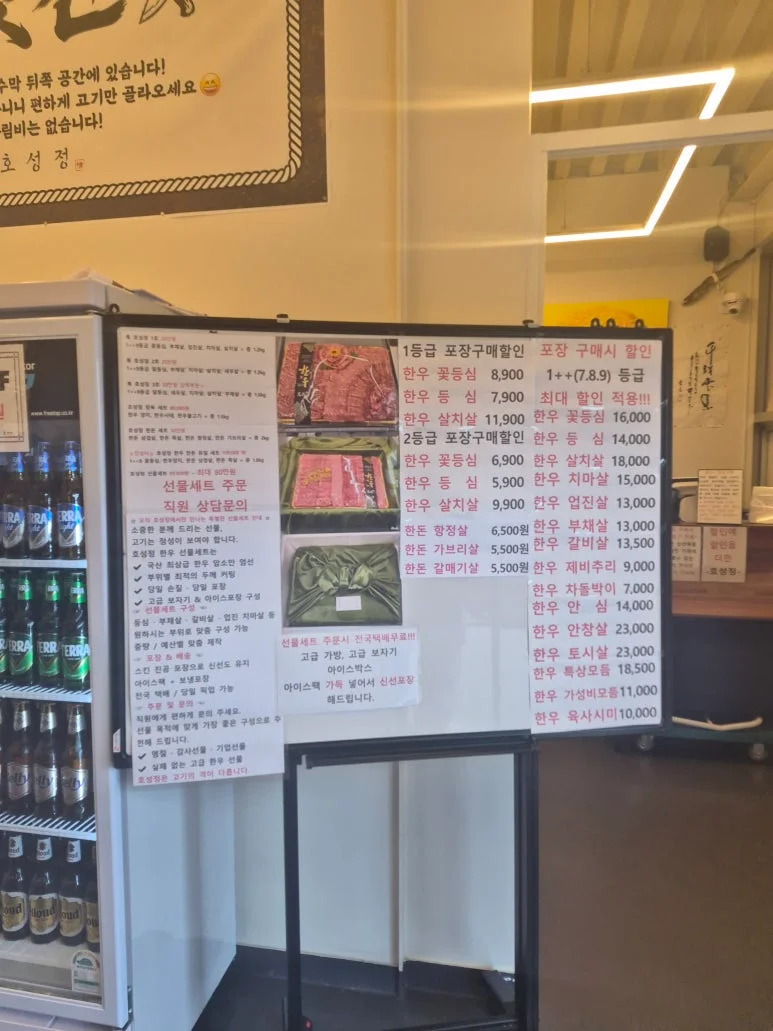 수막 뒤쪽 공간에 있습니다!
니니 편하게 고기만 골라오세요
림비는 없습니다!
호성정
www.freetop.co.kr
TERRA
TERRA
TERRA
특 호성정 1호
특 호성정 2호
특 호성정 3호
선물세트 주문
직원 상담문의
소중한 분께 드리는 선물,
고기는 정성이 보여야 합니다.
호성정 한우 선물세트는
✔ 국산 최상급 한우 암소만 엄선
✔ 부위별 최적의 두께 커팅
✔ 당일 손질 · 당일 포장
✔ 고급 보자기 & 아이스포장 구성
선물세트 구성
등심 · 부채살 · 갈비살 · 업진 치마살 등
원하시는 부위로 맞춤 구성 가능
중량 / 예산별 맞춤 제작
포장 & 배송
스킨 진공 포장으로 신선도 유지
아이스팩 + 보냉포장
전국 택배 / 당일 픽업 가능
주문 및 문의
직원에게 편하게 문의 주세요.
선물 목적에 맞게 가장 좋은 구성으로 추
천해 드립니다.
✔ 명절 · 감사선물 · 기업선물
✔ 실패 없는 고급 한우 선물
호성정은 고기의 격이 다릅니다
선물세트 주문시 전국택배무료!!!
고급 가방, 고급 보자기
아이스박스
아이스팩 가득 넣어서 신선포장
해드립니다.
1등급 포장구매할인
한우 꽃등심 8,900
한우 등 심 7,900
한우 살치살 11,900
2등급 포장구매할인
한우 꽃등심 6,900
한우 등 심 5,900
한우 살치살 9,900
한돈 항정살 6,500원
한돈 가브리살 5,500원
한돈 갈매기살 5,500원
포장 구매시 할인
1++(7.8.9) 등급
최대 할인 적용!!!
한우 꽃등심 16,000
한우 등 심 14,000
한우 살치살 18,000
한우 치마살 15,000
한우 업진살 13,000
한우 부채살 13,000
한우 갈비살 13,500
한우 제비추리 9,000
한우 차돌박이 7,000
한우 안 심 14,000
한우 안창살 23,000
한우 토시살 23,000
한우 특상모듬 18,500
한우 가성비모듬 11,000
한우 육사시미 10,000
할인에
할인을
더한
-호성정-